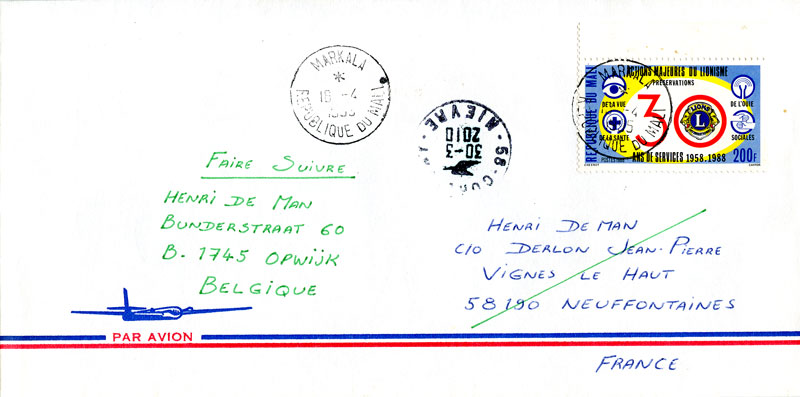 MARKALA
*
REPUBLIQUE DU MALI
58-CO
NIEVRE
30-3
2010
REPUBLIQUE DU MALI
ACTIONS MAJEURES DU LIONISME
PRÉSERVATIONS
DE LA VUE
DE L'OUIE
30
LIONS
L
DE LA SANTE
SOCIALES
ANS DE SERVICES 1958.1988
200F
MARKALA
FAIRE SUIVRE
HENRI DE MAN
BUNDERSTRAAT 60
B. 1745 OPWIJK
BELGIQUE
HENRI DE MAN
C/O DERLON JEAN-PIERRE
VIGNES LE HAUT
58190 NEUFFONTAINES
FRANCE
PAR AVION